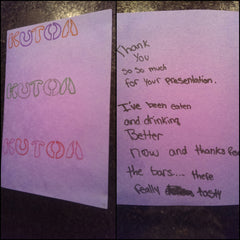 KUTOA
KUTOA
KUTOA
Thank
You
so so much
for Your presentation.
I've been eaten
and drinking
Better
now and thanks for
the bars... there
really tasty